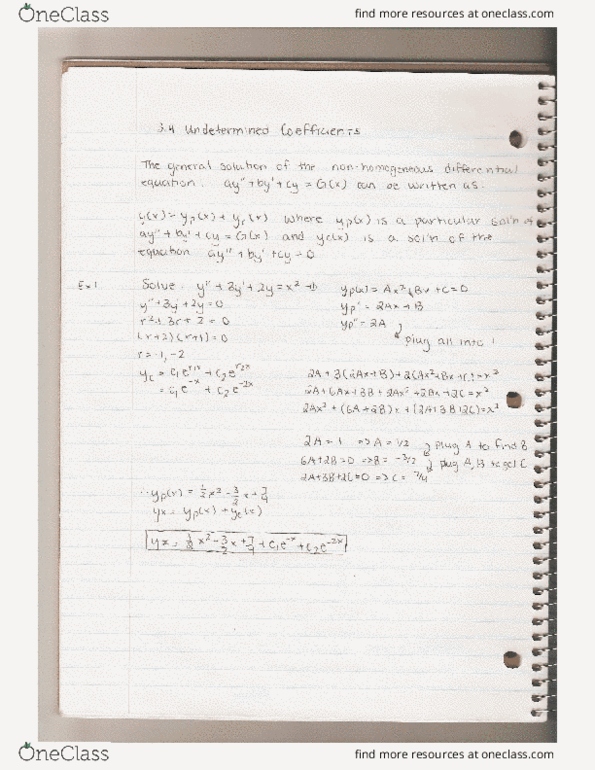 OneClass
find more resources at oneclass.com
3.4 Undetermined Coefficients
The general solution of the non-homogenous differential
equation: ay" + by' + cy = G(x) can be written as:
y(x) = yp(x) + yc(x) where yp(x) is a particular soln of
ay" + by' + cy = G(x) and yc(x) is a soln of the
equation ay" + by' + cy = 0
Ex 1 Solve: y" + 3y' + 2y = x² -①
y" + 3y' + 2y = 0
r² + 3r + 2 = 0
(r+2)(r+1) = 0
r = -1, -2
yc = c₁e^r₁x + c₂e^r₂x
= c₁e^-x + c₂e^-2x
yp(x) = Ax² + Bx + C = 0
yp' = 2Ax + B
yp" = 2A
plug all into 1
2A + 3(2Ax + B) + 2(Ax² + Bx + C) = x²
2A + 6Ax + 3B + 2Ax² + 2Bx + 2C = x²
2Ax² + (6A + 2B)x + (2A + 3B + 2C) = x²
2A = 1 => A = 1/2
6A + 2B = 0 => B = -3/2
2A + 3B + 2C = 0 => C = 7/4
plug A to find B
plug A, B to get C
∴ yp(x) = 1/2 x² - 3/2 x + 7/4
yx = yp(x) + yc(x)
yx = 1/2 x² - 3/2 x + 7/4 + c₁e^-x + c₂e^-2x
OneClass
find more resources at oneclass.com